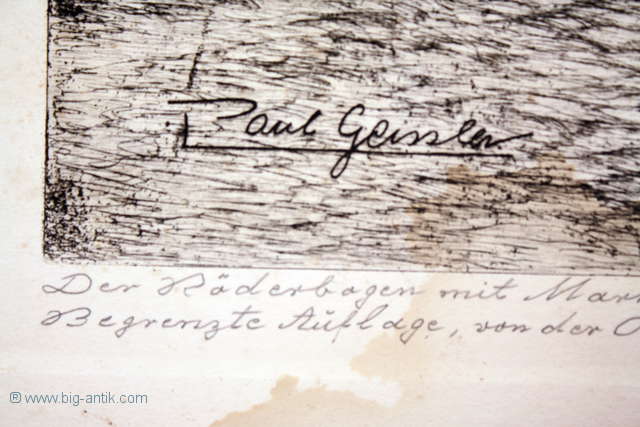 Paul Geissler
Der Röderbogen mit Mar
Begrenzte Auflage, von der
® www.big-antik.com